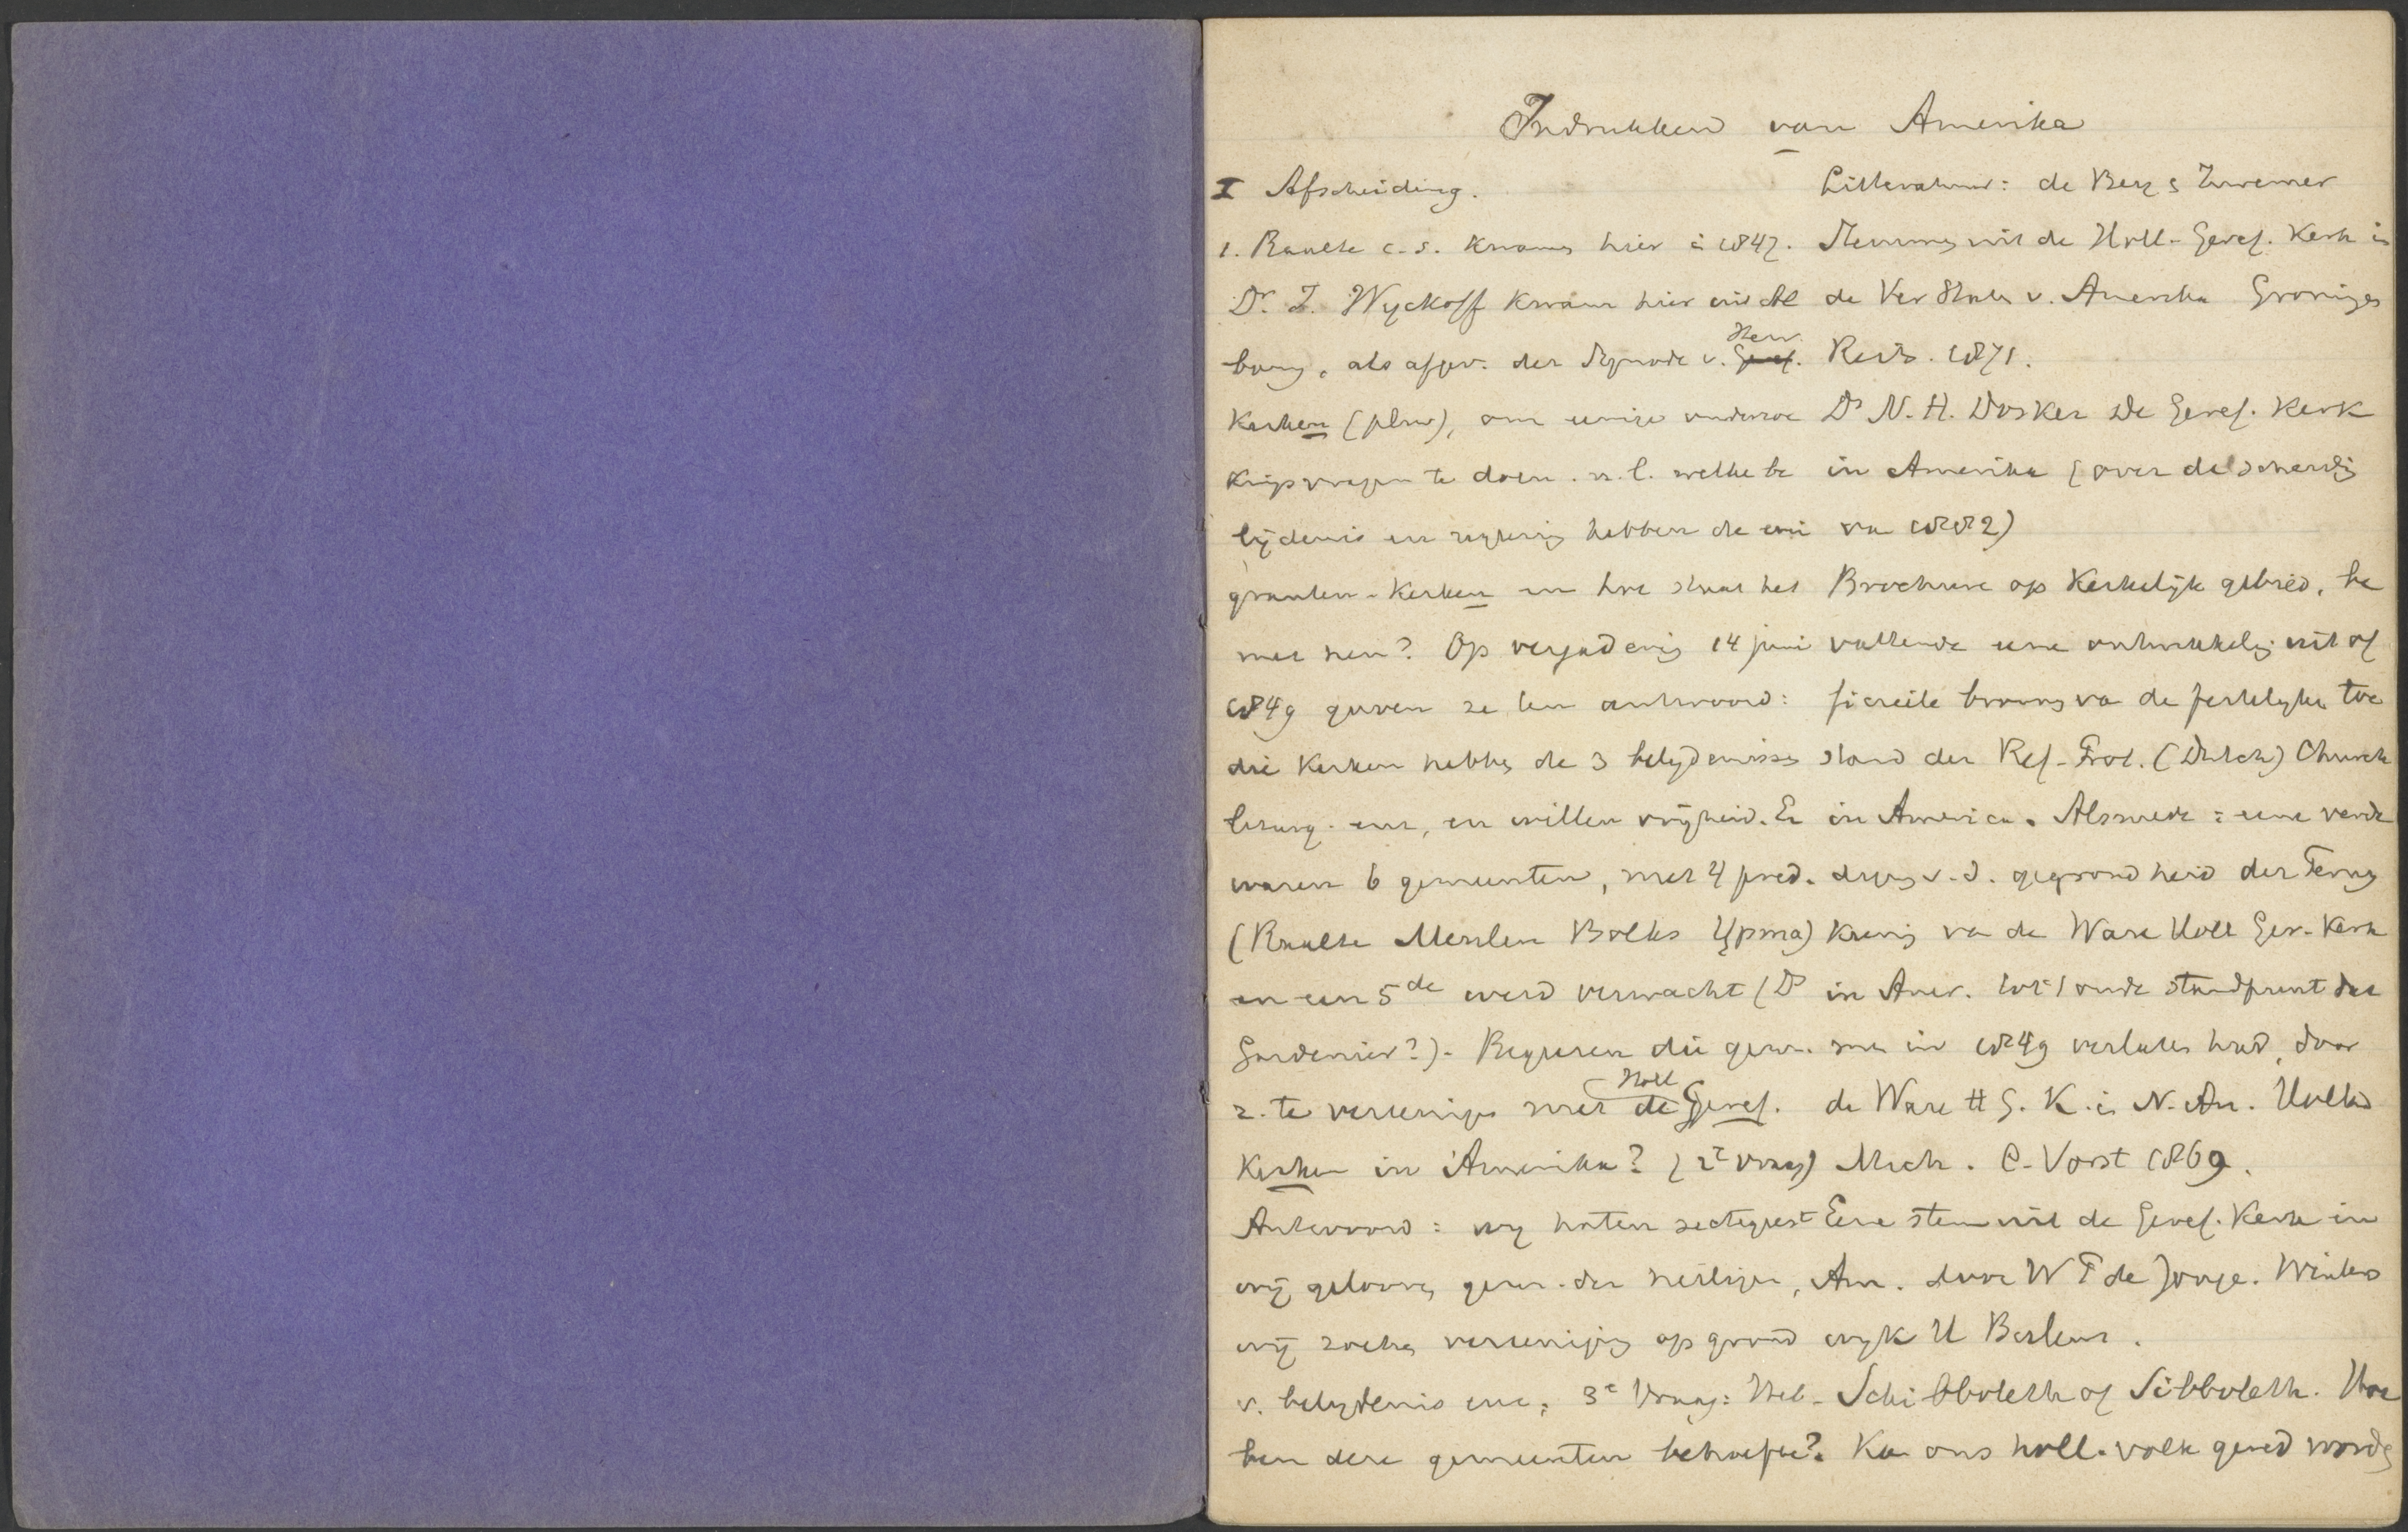 Indrukken van Amerika
I Afscheiding.
1. Raalte c.s. kwamen hier in 1847.
Dr. I. Wyckoff kwam hier uit Al
bany, als afgev. der Synode v. Herv. Geref.
Kerken (plur), om eenige onderzoe
kingsvragen te doen. n.l. welke be
lijdenis en regering hebben de emi
granten-Kerken en hoe staat het
met hen? Op vergadering 14 juni
1849 gaven ze ten antwoord:
die Kerken hebben de 3 belijdenissen
en willen vrijheid. Er
waren 6 gemeenten, met 4 pred.
(Raalte Meulen Bolks Ypma)
en een 5de werd verwacht (Ds
Gardenier?). Begeeren die gem.
2. te vereenigen met de Holl Geref.
Kerken in Amerika? (2e vraag)
Antwoord: wij haten sectegeest
wij gelooven gem. der heiligen,
wij zochten vereeniging op grond
v. belijdenis enz. 3e Vraag: Heb-
ben deze gemeenten behoefte?
Litteratuur: de Beij & Zwemer
Stemmen uit de Holl-Geref. Kerk in
de Ver Staten v. Amerika Groningen
Reits. 1871.
Ds N. H. Dosker De Geref. Kerk
in Amerika (over de scheuring
van 1882)
Brochure op Kerkelijk gebied, be
vattende eene ontwikkeling uit of
ficieele bronnen van de kerkelijken toe
stand der Ref. Prot. (Dutch) Church
in America. Alsmede: eene verde
diging v.d. gegrondheid der Terug
keering van de Ware Holl Ger. Kerk
in Amer. tot 't oude standpunt dat
men in 1849 verlaten had, door
de Ware H G. K. in N. Am. Holland
Mich. C. Vorst 1869.
Eene stem uit de Geref. Kerk in
Am. door W P de Jonge. Winters
wijk U Bulens.
Schibboleth of Sibboleth. Hoe
Kan ons holl. volk gered worden